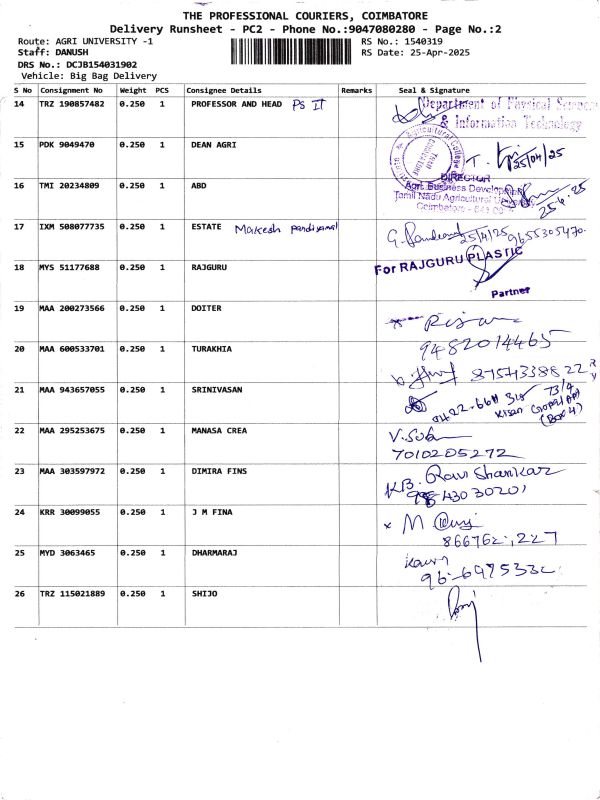 THE PROFESSIONAL COURIERS, COIMBATORE
Delivery Runsheet - PC2 - Phone No.:9047080280 - Page No.:2
Route: AGRI UNIVERSITY -1 RS No.: 1540319
Staff: DANUSH RS Date: 25-Apr-2025
DRS No.: DCJB154031902
Vehicle: Big Bag Delivery
S No Consignment No Weight PCS Consignee Details Remarks Seal & Signature
14 TRZ 190857482 0.250 1 PROFESSOR AND HEAD PS IT Department of Physical Science
& Information Technology
15 PDK 9049470 0.250 1 DEAN AGRI 25/04/25
16 TMI 20234809 0.250 1 ABD DIRECTOR
Agri Business Development
Tamil Nadu Agricultural University
Coimbatore - 641 003
17 IXM 508077735 0.250 1 ESTATE 25/4/25 9655305470
18 MYS 51177688 0.250 1 RAJGURU For RAJGURU PLASTIC
Partner
19 MAA 200273566 0.250 1 DOITER
9482014465
20 MAA 600533701 0.250 1 TURAKHIA
21 MAA 943657055 0.250 1 SRINIVASAN
22 MAA 295253675 0.250 1 MANASA CREA
7010205272
23 MAA 303597972 0.250 1 DIMIRA FINS K.B. Ravi Shankar
24 KRR 30099055 0.250 1 J M FINA
25 MYD 3063465 0.250 1 DHARMARAJ
26 TRZ 115021889 0.250 1 SHIJO